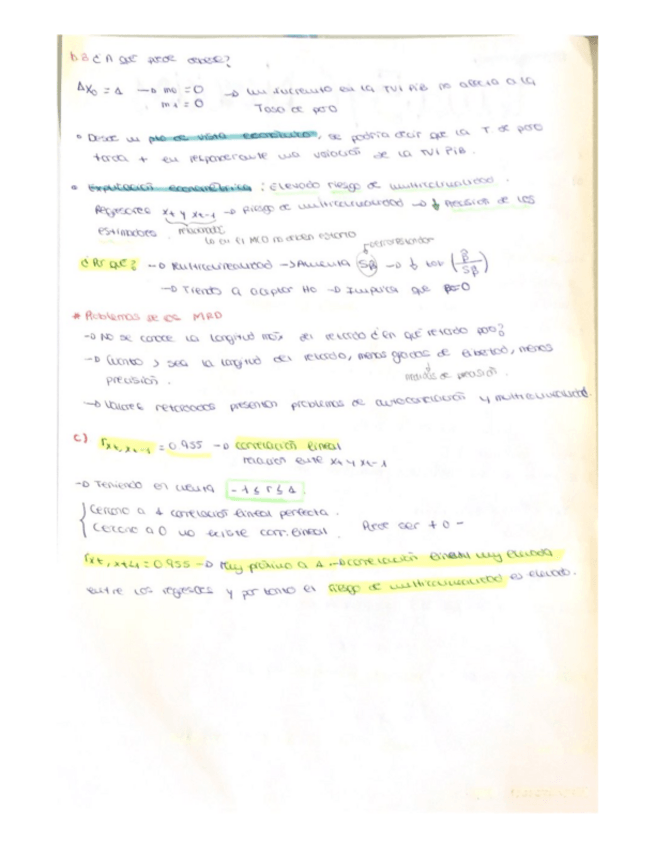 b.3 ¿A qué puede deberse?
ΔX₀ = 1 → m₀ = 0 → un incremento en la TVI PIB no afecta a la
m₁ = 0 Tasa de paro
• Desde un pto de vista económico, se podría decir que la T. de paro
tarda + en responder ante una variación de la TVI PIB.
• Explicación econométrica: Elevado riesgo de multicolinealidad.
Regresores xt y xt-1 → Riesgo de multicolinealidad → ↓ precisión de los
estimadores.
↳ en el MCO no orden estricto
¿Por qué? → Multicolinealidad → Aumenta Sβ̂ → ↓ (β̂/Sβ̂)
→ Tiendo a aceptar H₀ → Implica que β=0
* Problemas de los MRD
→ No se conoce la longitud máx del retardo ¿en qué retardo paro?
→ Cuanto > sea la longitud del retardo, menos grados de libertad, menos
precisión. medidas de precisión.
→ Valores retardados presentan problemas de autocorrelación y multicolinealidad.
c) rxt,xt-1 = 0.955 → correlación lineal
relación entre xt y xt-1
→ Teniendo en cuenta -1 ≤ r ≤ 1.
Cercano a 1 correlación lineal perfecta.
Cercano a 0 no existe corr. lineal. Puede ser + o -
rxt,xt-1 = 0.955 → Muy próximo a 1 → correlación lineal muy elevada
entre los regresores y por tanto el riesgo de multicolinealidad es elevado.